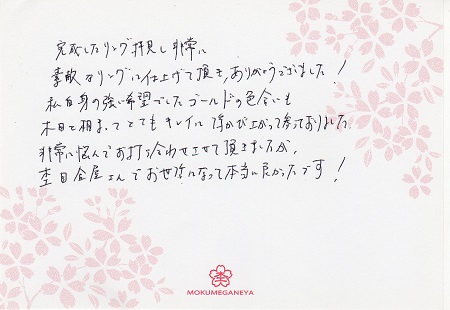 完成したリング拝見し非常に
素敵なリングに仕上げて頂き、ありがとうございました!
私自身の強い希望でしたゴールドの色合いも
木目と相まってとてもキレイに浮かび上がって参っておりました。
非常に悩んでお打ち合わせさせて頂きましたが、
杢目金屋さんでお世話になって本当に良かったです!
MOKUMEGANEYA